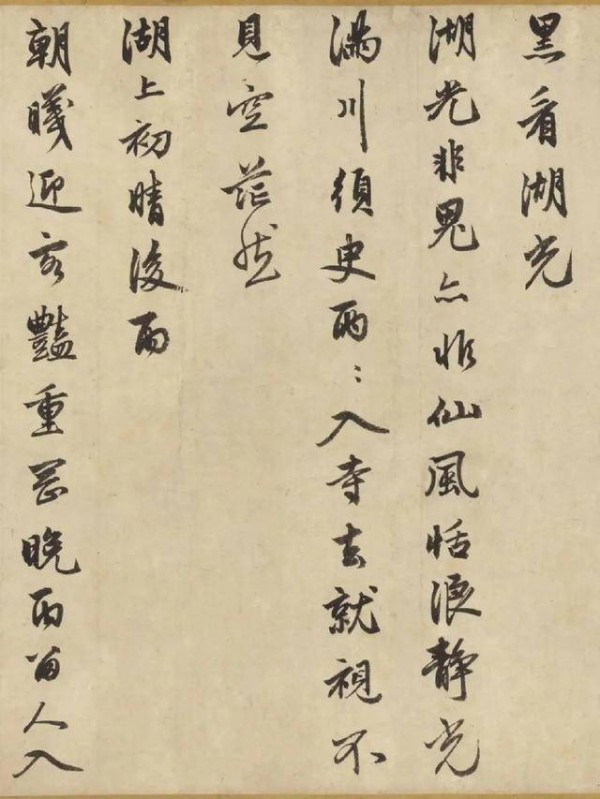 黑看湖光
湖光非鬼亦非仙風恬浪靜光
滿川須臾兩〻入寺去就視不
見空茫然
湖上初晴後雨
朝曦迎客豔重岡晚雨留人入